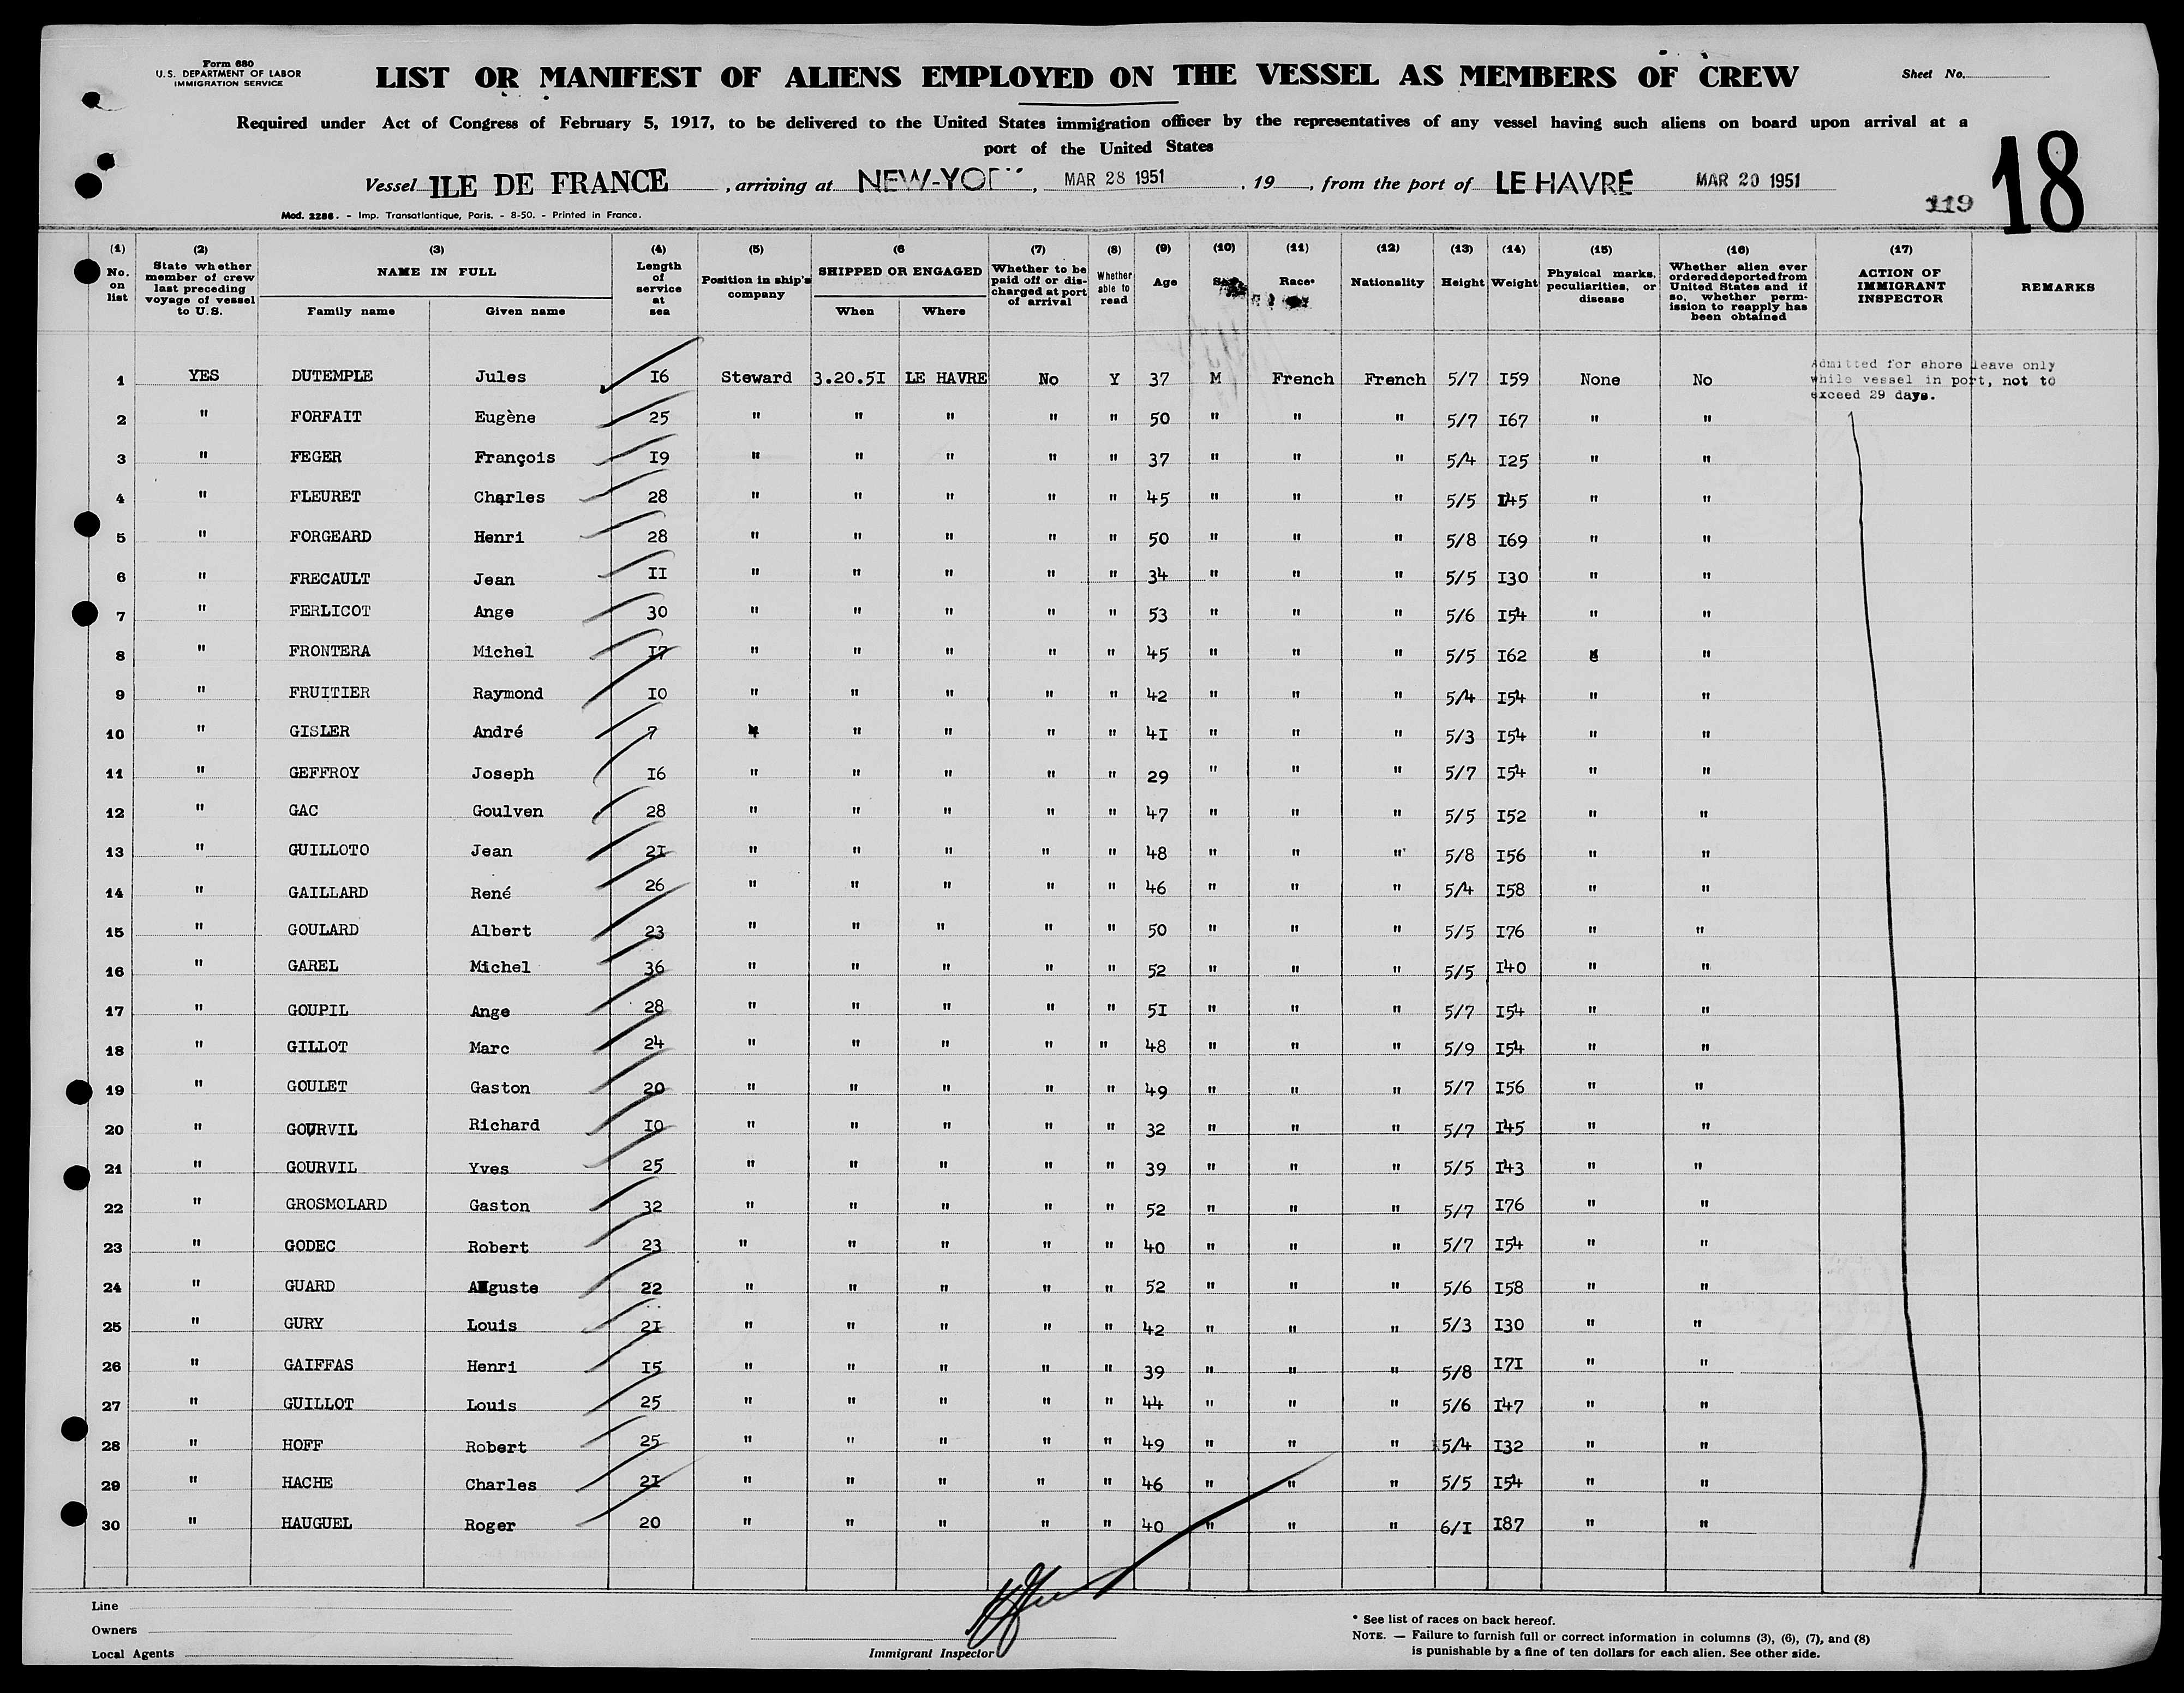 Form 680
U.S. DEPARTMENT OF LABOR
IMMIGRATION SERVICE
LIST OR MANIFEST OF ALIENS EMPLOYED ON THE VESSEL AS MEMBERS OF CREW
Sheet No.
Required under Act of Congress of February 5, 1917, to be delivered to the United States immigration officer by the representatives of any vessel having such aliens on board upon arrival at a
port of the United States
18
Vessel ILE DE FRANCE , arriving at NEW-YO , MAR 28 1951 , 19 , from the port of LE HAVRE MAR 20 1951
119
Mod. 2286. - Imp. Transatlantique, Paris. - 8-50. - Printed in France.
(1) (2) (3) (4) (5) (6 (7) (8) (9) (10) (11) (12) (13) (14) (15) (16) (17)
No. on list State whether member of crew last preceding voyage of vessel to U.S. NAME IN FULL Family name Given name Length of service at sea Position in ship's company SHIPPED OR ENGAGED When Where Whether to be paid off or discharged at port of arrival Whether able to read Age Race* Nationality Height Weight Physical marks, peculiarities, or disease Whether alien ever ordered deported from United States and if so, whether permission to reapply has been obtained ACTION OF IMMIGRANT INSPECTOR REMARKS
Admitted for shore leave only
while vessel in port, not to
exceed 29 days.
1 YES DUTEMPLE Jules 16 Steward 3.20.51 LE HAVRE No Y 37 M French French 5/7 159 None No
2 " FORFAIT Eugène 25 " " " " " 50 " " " 5/7 167 " "
3 " FEGER François 19 " " " " " 37 " " " 5/4 125 " "
4 " FLEURET Charles 28 " " " " " 45 " " " 5/5 145 " "
5 " FORGEARD Henri 28 " " " " " 50 " " " 5/8 169 " "
6 " FRECAULT Jean 11 " " " " " 34 " " " 5/5 130 " "
7 " FERLICOT Ange 30 " " " " " 53 " " " 5/6 154 " "
8 " FRONTERA Michel 17 " " " " " 45 " " " 5/5 162 "
9 " FRUITIER Raymond 10 " " " " " 42 " " " 5/4 154 " "
10 " GISLER André 7 " " " " 41 " " " 5/3 154 " "
11 " GEFFROY Joseph 16 " " " " " 29 " " " 5/7 154 " "
12 " GAC Goulven 28 " " " " " 47 " " " 5/5 152 " "
13 " GUILLOTO Jean 21 " " " " " 48 " " " 5/8 156 " "
14 " GAILLARD René 26 " " " " " 46 " " " 5/4 158 " "
15 " GOULARD Albert 23 " " " " " 50 " " " 5/5 176 " "
16 " GAREL Michel 36 " " " " " 52 " " " 5/5 140 " "
17 " GOUPIL Ange 28 " " " " " 51 " " " 5/7 154 " "
18 " GILLOT Marc 24 " " " " " 48 " " " 5/9 154 " "
19 " GOULET Gaston 20 " " " " " 49 " " " 5/7 156 " "
20 " GOURVIL Richard 10 " " " " " 32 " " " 5/7 145 " "
21 " GOURVIL Yves 25 " " " " " 39 " " " 5/5 143 " "
22 " GROSMOLARD Gaston 32 " " " " " 52 " " " 5/7 176 " "
23 " GODEC Robert 23 " " " " " 40 " " " 5/7 154 " "
24 " GUARD Auguste 22 " " " " " 52 " " " 5/6 158 " "
25 " GURY Louis 21 " " " " " 42 " " " 5/3 130 " "
26 " GAIFFAS Henri 15 " " " " " 39 " " " 5/8 171 " "
27 " GUILLOT Louis 25 " " " " " 44 " " " 5/6 147 " "
28 " HOFF Robert 25 " " " " " 49 " " " 5/4 132 " "
29 " HACHE Charles 21 " " " " " 46 " " " 5/5 154 " "
30 " HAUGUEL Roger 20 " " " " " 40 " " " 6/1 187 " "
Line
Owners
Local Agents
Immigrant Inspector
* See list of races on back hereof.
NOTE. — Failure to furnish full or correct information in columns (3), (6), (7), and (8)
is punishable by a fine of ten dollars for each alien. See other side.